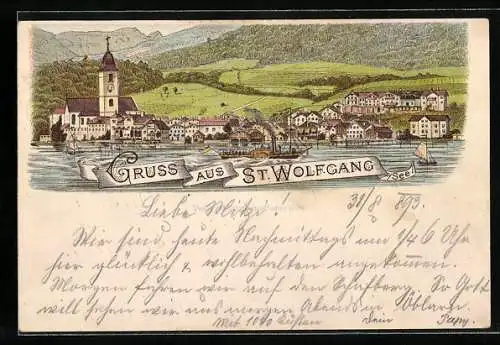 GRUSS AUS ST. WOLFGANG (See)
Liebe Mitzi! 31/8 893.
Wir sind heute Nachmittags um 1/4 6 Uhr
hier glücklich & wohlbehalten angekommen.
Morgen fahren wir auf den Schafberg. So Gott
will sehen wir uns morgen Abends in Öblarn.
Mit 1000 Küssen Dein Papa.